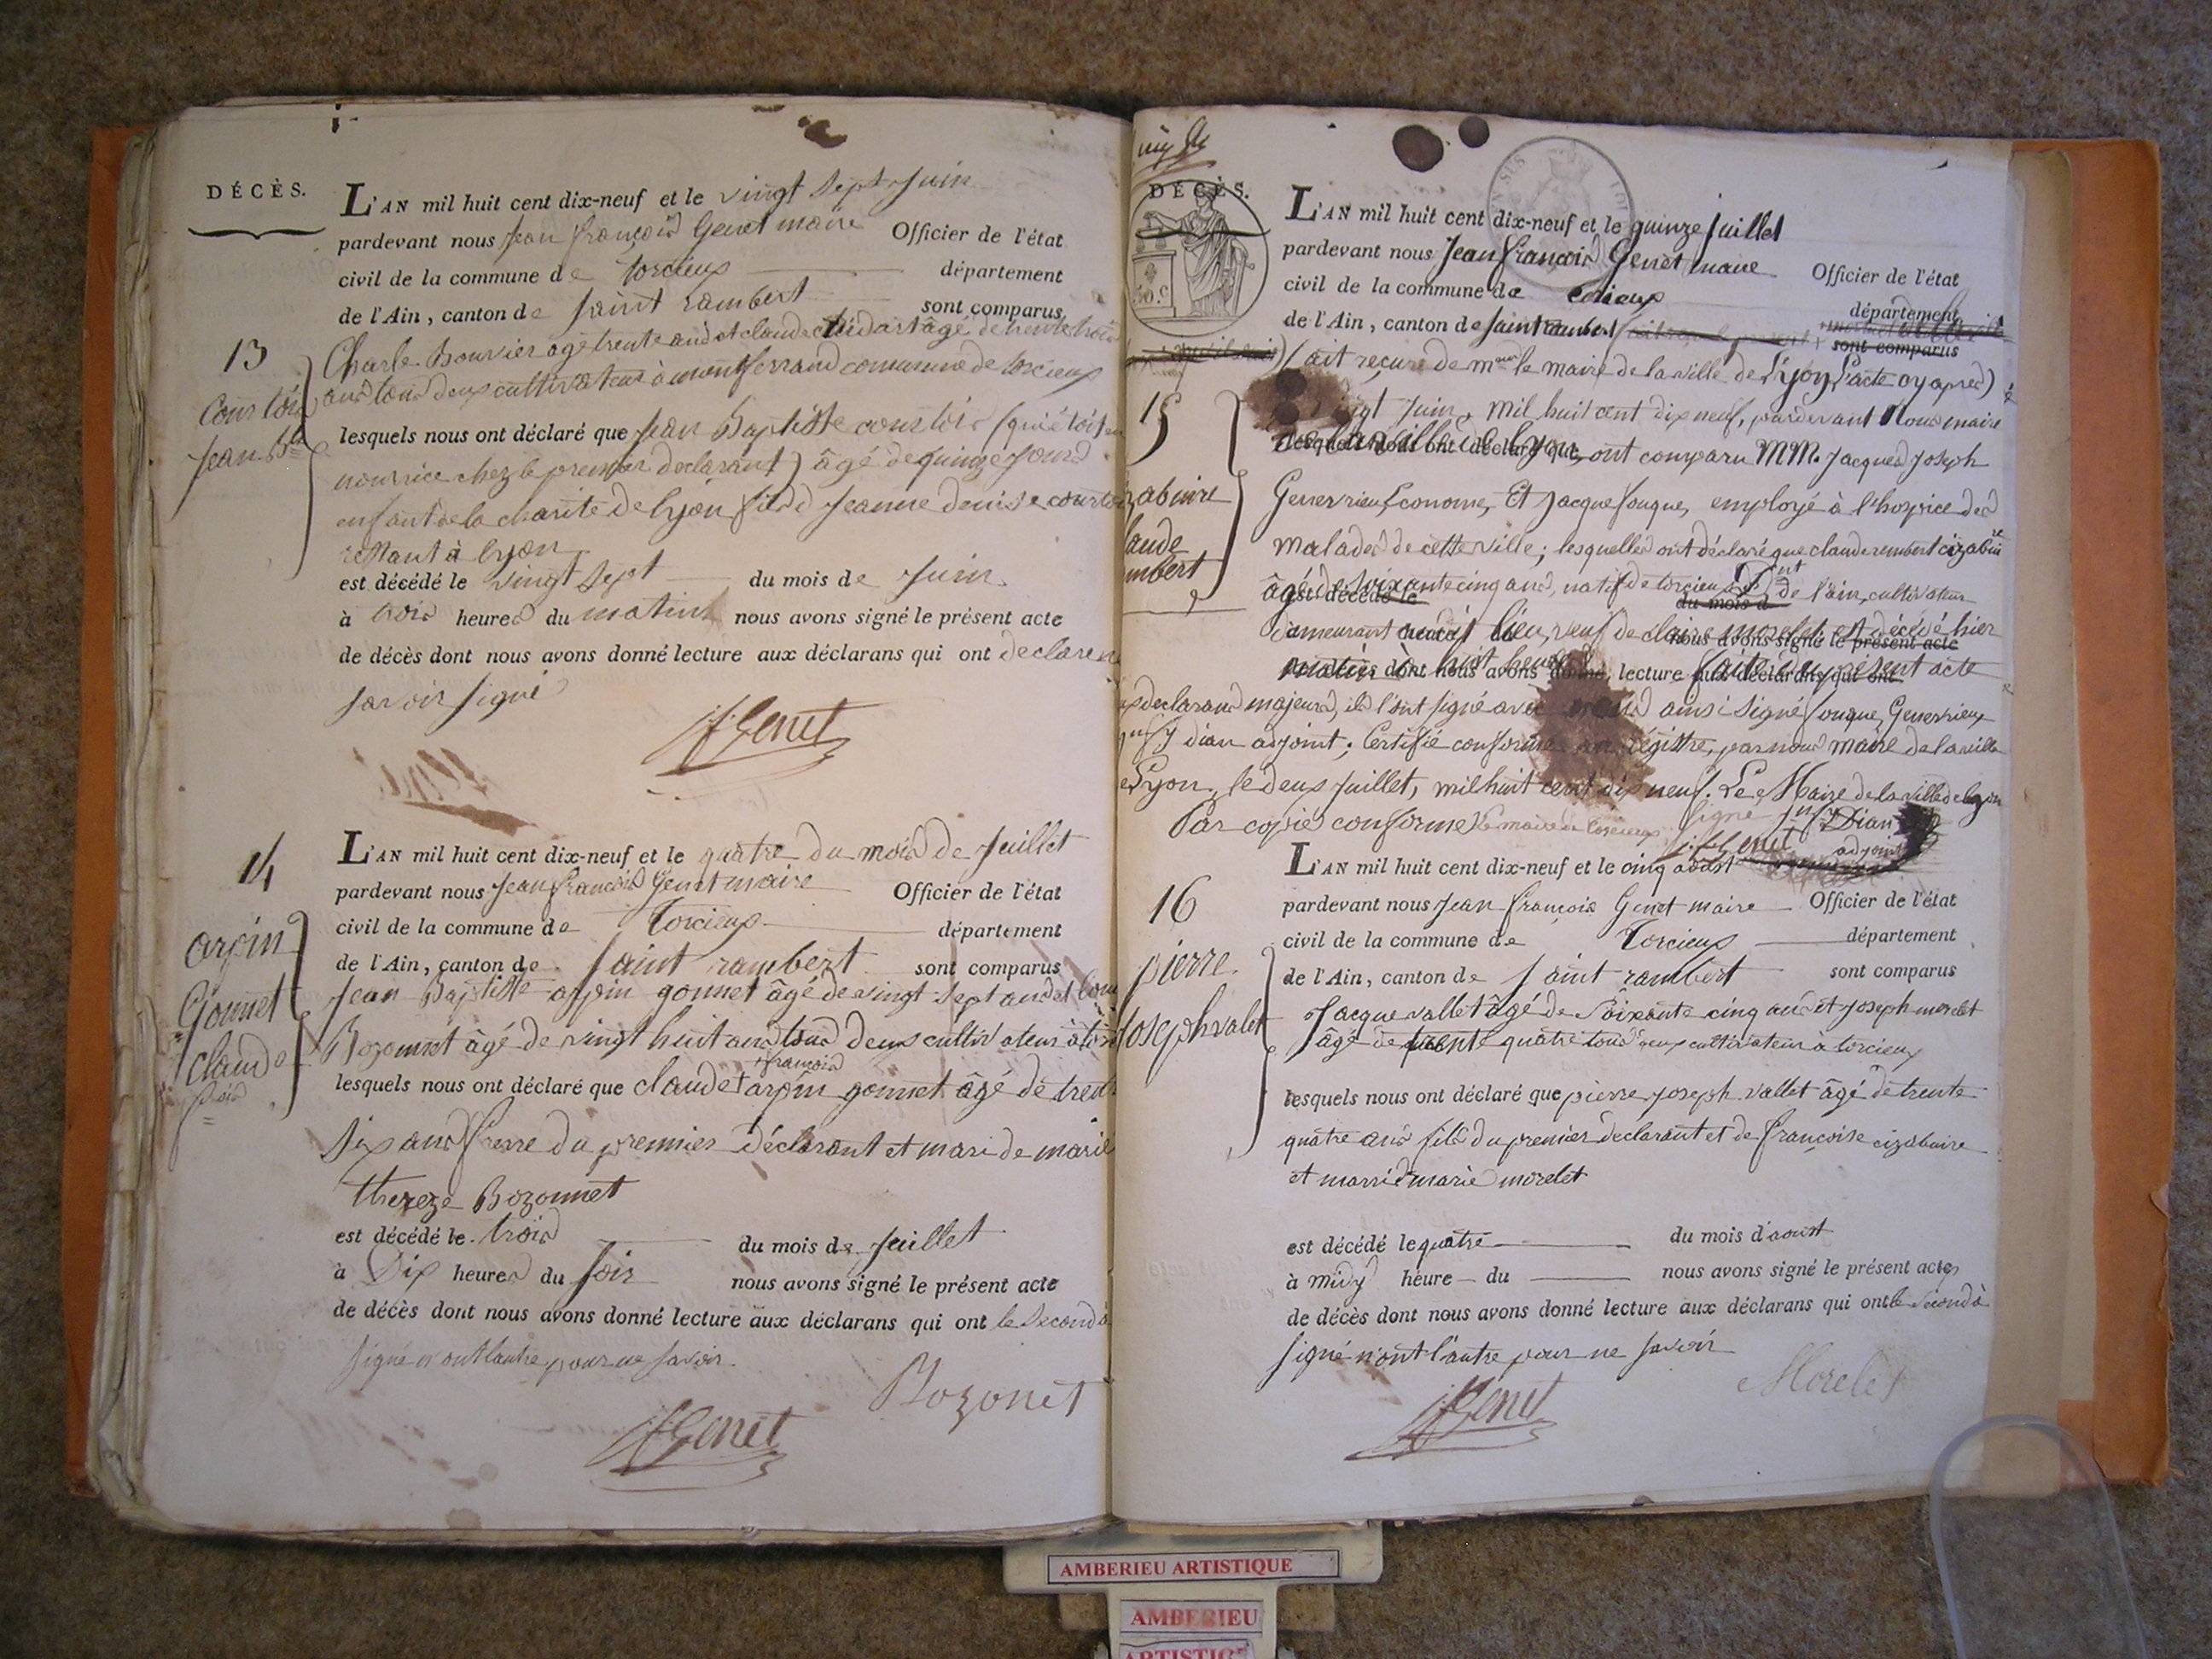 DÉCÈS.
L'AN mil huit cent dix-neuf et le vingt sept Juin
pardevant nous Jean françois Genet maire Officier de l'état
civil de la commune de torcieux département
de l'Ain, canton de saint rambert sont comparus
13
Courtois
Jean Bte
Charle Bouvier agé trente ans et claude âgé de trente trois
ans tous deux cultivateur à montferrand commune de torcieux
lesquels nous ont déclaré que Jean Baptiste courtois (qui étoit en
nourrice chez le premier declarant) âgé de quinze jours
enfant de la charité de lyon fils d Jeanne denise courtois
restant à lyon
est décédé le vingt sept du mois de Juin
à trois heures du matin nous avons signé le présent acte
de décès dont nous avons donné lecture aux déclarans qui ont declare ne
savoir signé
JfGenet
14
arpin
Gonnet
claude
fçois
L'AN mil huit cent dix-neuf et le quatre du mois de Juillet
pardevant nous Jean françois Genet maire Officier de l'état
civil de la commune de Torcieux département
de l'Ain, canton de saint rambert sont comparus
Jean Baptiste arpin gonnet âgé de vingt sept ans et
Bozonnet âgé de vingt huit ans tous deux cultivateur à
françois
lesquels nous ont déclaré que claude + arpin gonnet âgé de trente
six ans frerre du premier déclarant et mari de marie
thereze Bozonnet
est décédé le trois du mois de Juillet
à Six heures du soir nous avons signé le présent acte
de décès dont nous avons donné lecture aux déclarans qui ont le second à
signé non l'autre pour ne savoir
Bozonet
JfGenet
DÉCÈS.
50.C
L'AN mil huit cent dix-neuf et le quinze Juillet
pardevant nous Jean françois Genet maire Officier de l'état
civil de la commune de torcieux département
de l'Ain, canton de saint rambert sont comparus
(ait reçu de mr le maire de la ville de Lyon L'acte cy apres)
15
vingt Juin, mil huit cent dix neuf, pardevant Nous maire
de la ville de Lyon, ont comparu MM. Jacques Joseph
lesquels nous ont déclaré que
izabuire
laude
mbert
Genevrieu, Econome, Et Jacque fouque, employé à l'hospice des
malades de cette ville; lesquelles ont déclaré que claude rembert cizabuire
âgé de soixante cinq ans, natif de torcieux Dpnt de l'ain, cultivateur
est décédé le du mois d
demeurant audit lieu, veuf de claire morelet est décédé hier
heure du nous avons signé le présent acte
matin à huit heures lecture faite du présent acte
de décès dont nous avons donné lecture aux déclarans qui ont
declarans majeurs, ils l'ont signé avec nous ainsi signé fouque, Genevrieu
dian adjoint; Certifié conforme au régistre, par nous maire de la ville
e Lyon, le deux Juillet, mil huit cent dix neuf. Le Maire de la ville de lyon
Signé Dian
adjoint
Par copie conforme Le maire de torcieux
JfGenet
16
pierre
Joseph valet
L'AN mil huit cent dix-neuf et le cinq aoust
pardevant nous Jean françois Genet maire Officier de l'état
civil de la commune de Torcieux département
de l'Ain, canton de saint rambert sont comparus
Jacque vallet âgé de Soixante cinq ans et Joseph morelet
âgé de trente quatre tous deux cultivateur a torcieux
lesquels nous ont déclaré que pierre joseph vallet âgé de trente
quatre ans fils du premier declarant et de françoise cizabuire
et marri d marie morelet
est décédé le quatre du mois d'aoust
à midy heure du nous avons signé le présent acte
de décès dont nous avons donné lecture aux déclarans qui ont le Second à
signé non l'autre pour ne savoir
Morelet
JfGenet
AMBERIEU ARTISTIQUE
AMBERIEU
ARTISTIQ